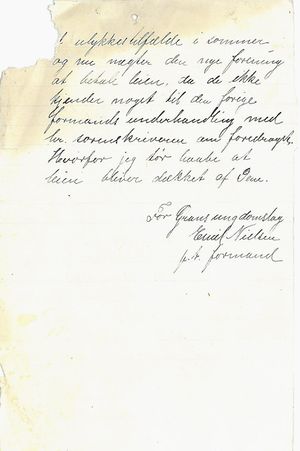 ulykkestilfælde i sommer
og nu nægter den nye forening
at betale leien, da de ikke
kjender noget til den forige
formands underhandling med
hr. sorenskriveren om foredraget.
Hvorfor jeg tør haabe at
leien bliver dækket af Dem.
For Grans ungdomslag
Emil Nielsen
p.t. formand